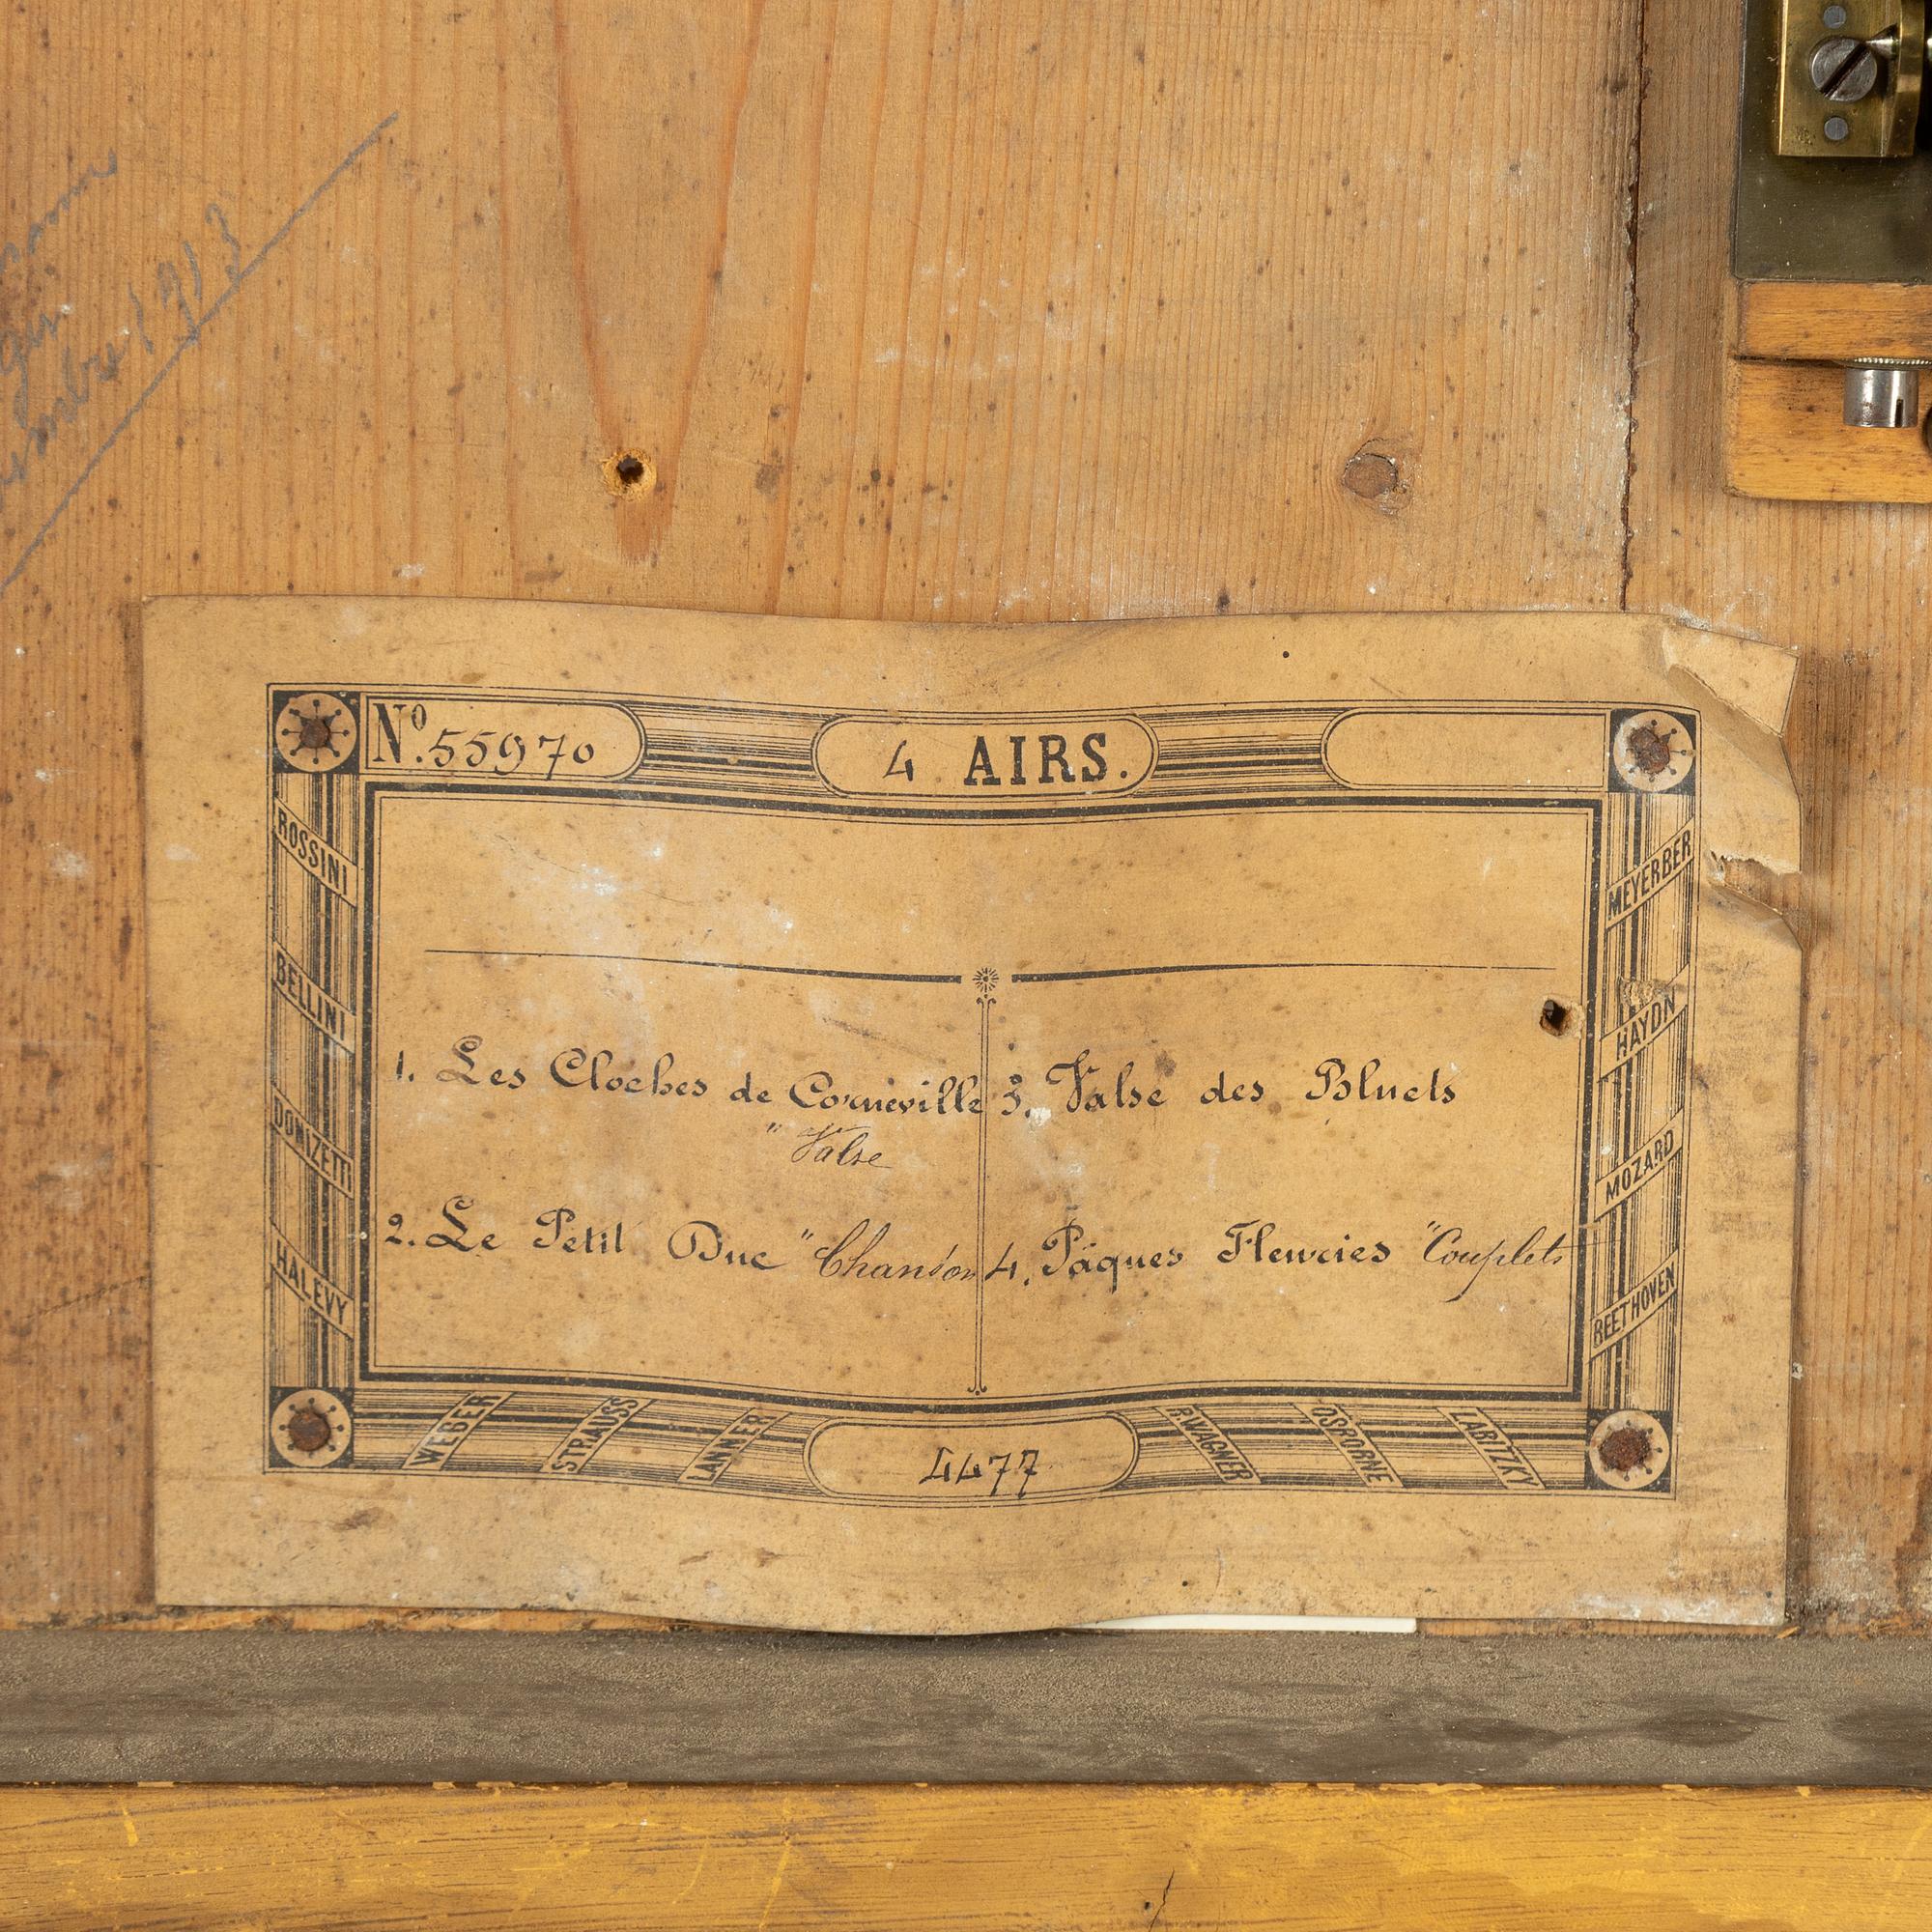 1913
No. 55970
4 AIRS.
ROSSINI
BELLINI
DONIZETTI
HALEVY
MEYERBER
HAYDN
MOZARD
BEETHOVEN
1. Les Cloches de Corneville
" Valse
2. Le Petit Duc " Chanson
3. Valse des Bluets
4. Pâques Fleuries "Couplets
WEBER
STRAUSS
LANNER
4477
R.WAGNER
OSBORNE
LABITZKY